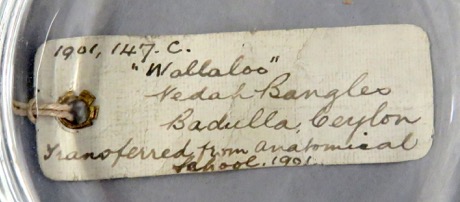 1901, 147. C.
"Wallaloo"
Vedah Bangles
Badulla, Ceylon
Transferred from Anatomical
School. 1901.